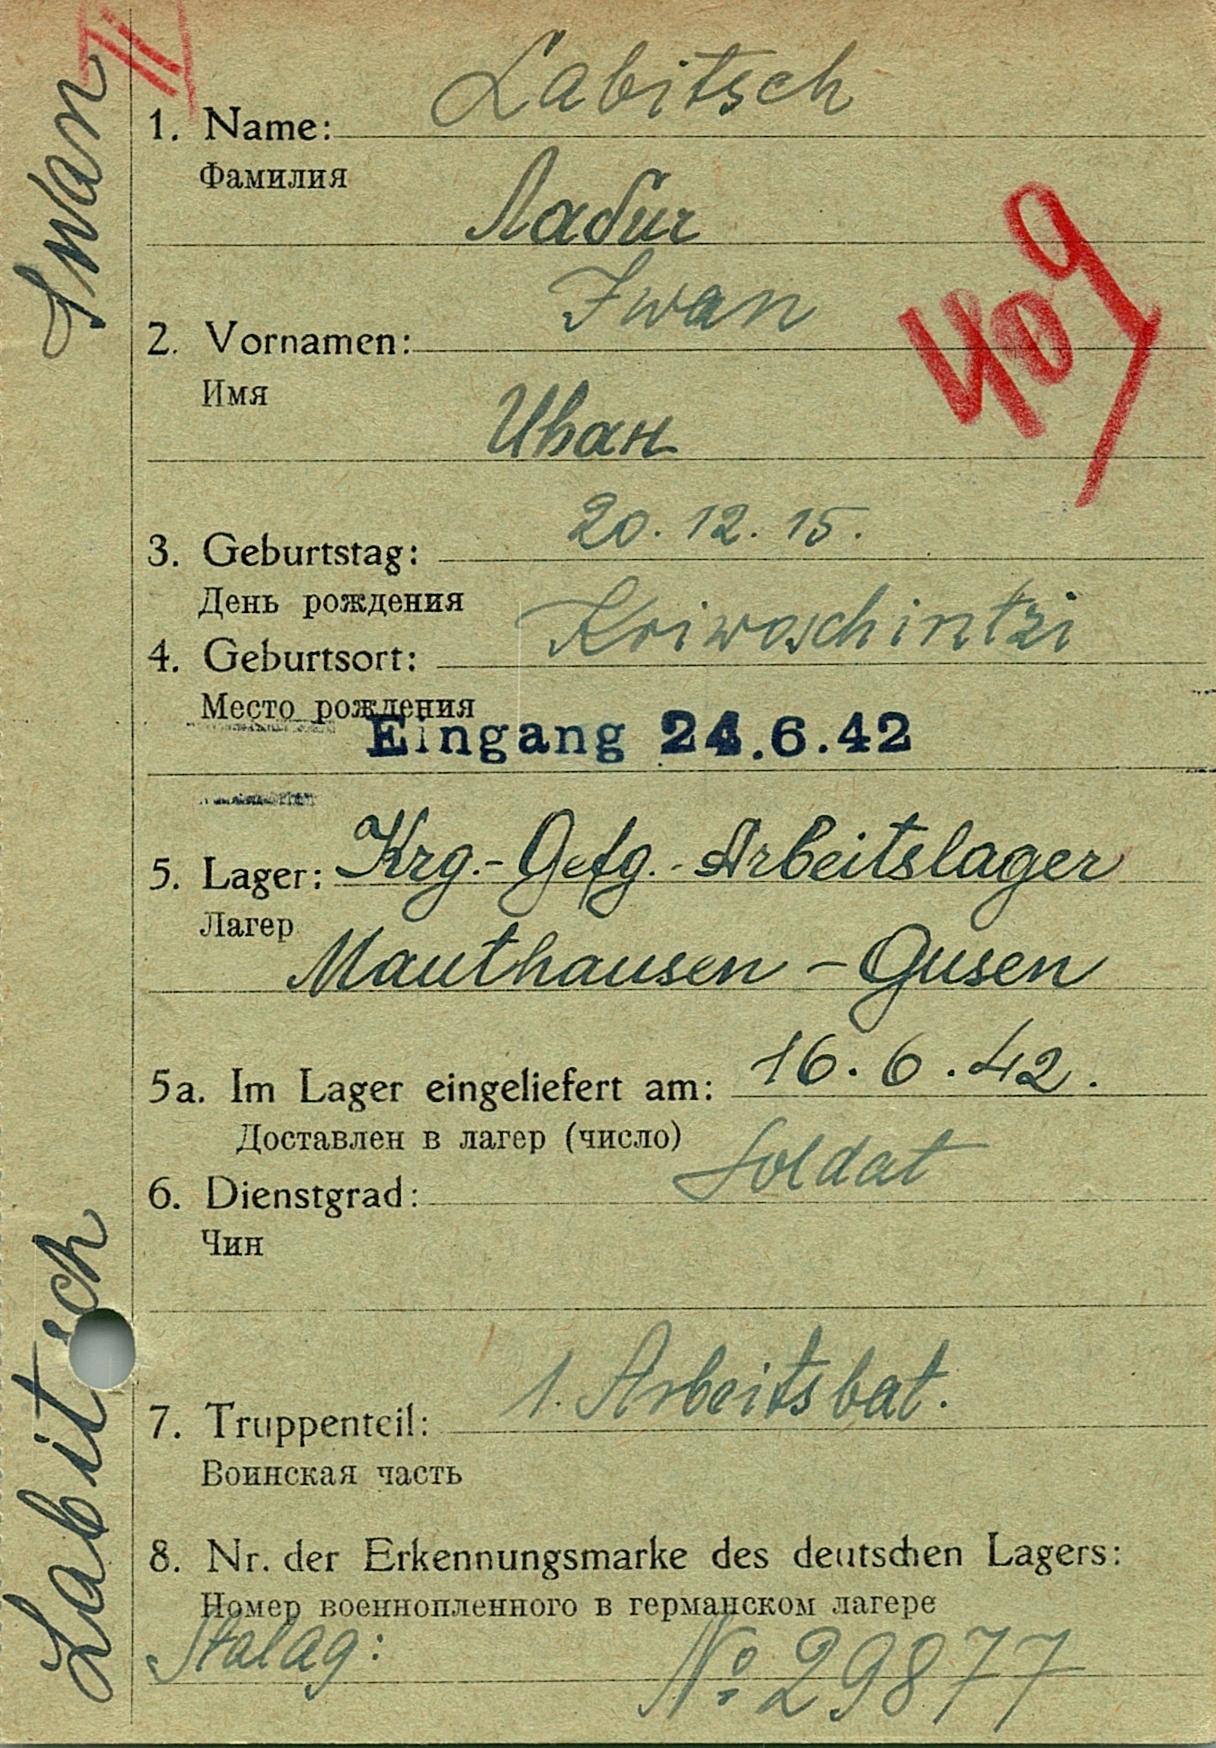 II
Labitsch Iwan
1. Name: Labitsch
Фамилия
Лабич
2. Vornamen: Iwan
Имя
Иван
409
3. Geburtstag: 20.12.15.
День рождения
4. Geburtsort: Kriwoschintzi
Место рождения
Eingang 24.6.42
5. Lager: Krg.-Gefg.-Arbeitslager
Лагер
Mauthausen - Gusen
5a. Im Lager eingeliefert am: 16.6.42.
Доставлен в лагер (число)
6. Dienstgrad: Soldat
Чин
7. Truppenteil: 1. Arbeitsbat.
Воинская часть
8. Nr. der Erkennungsmarke des deutschen Lagers:
Номер военнопленного в германском лагере
Stalag: № 29877